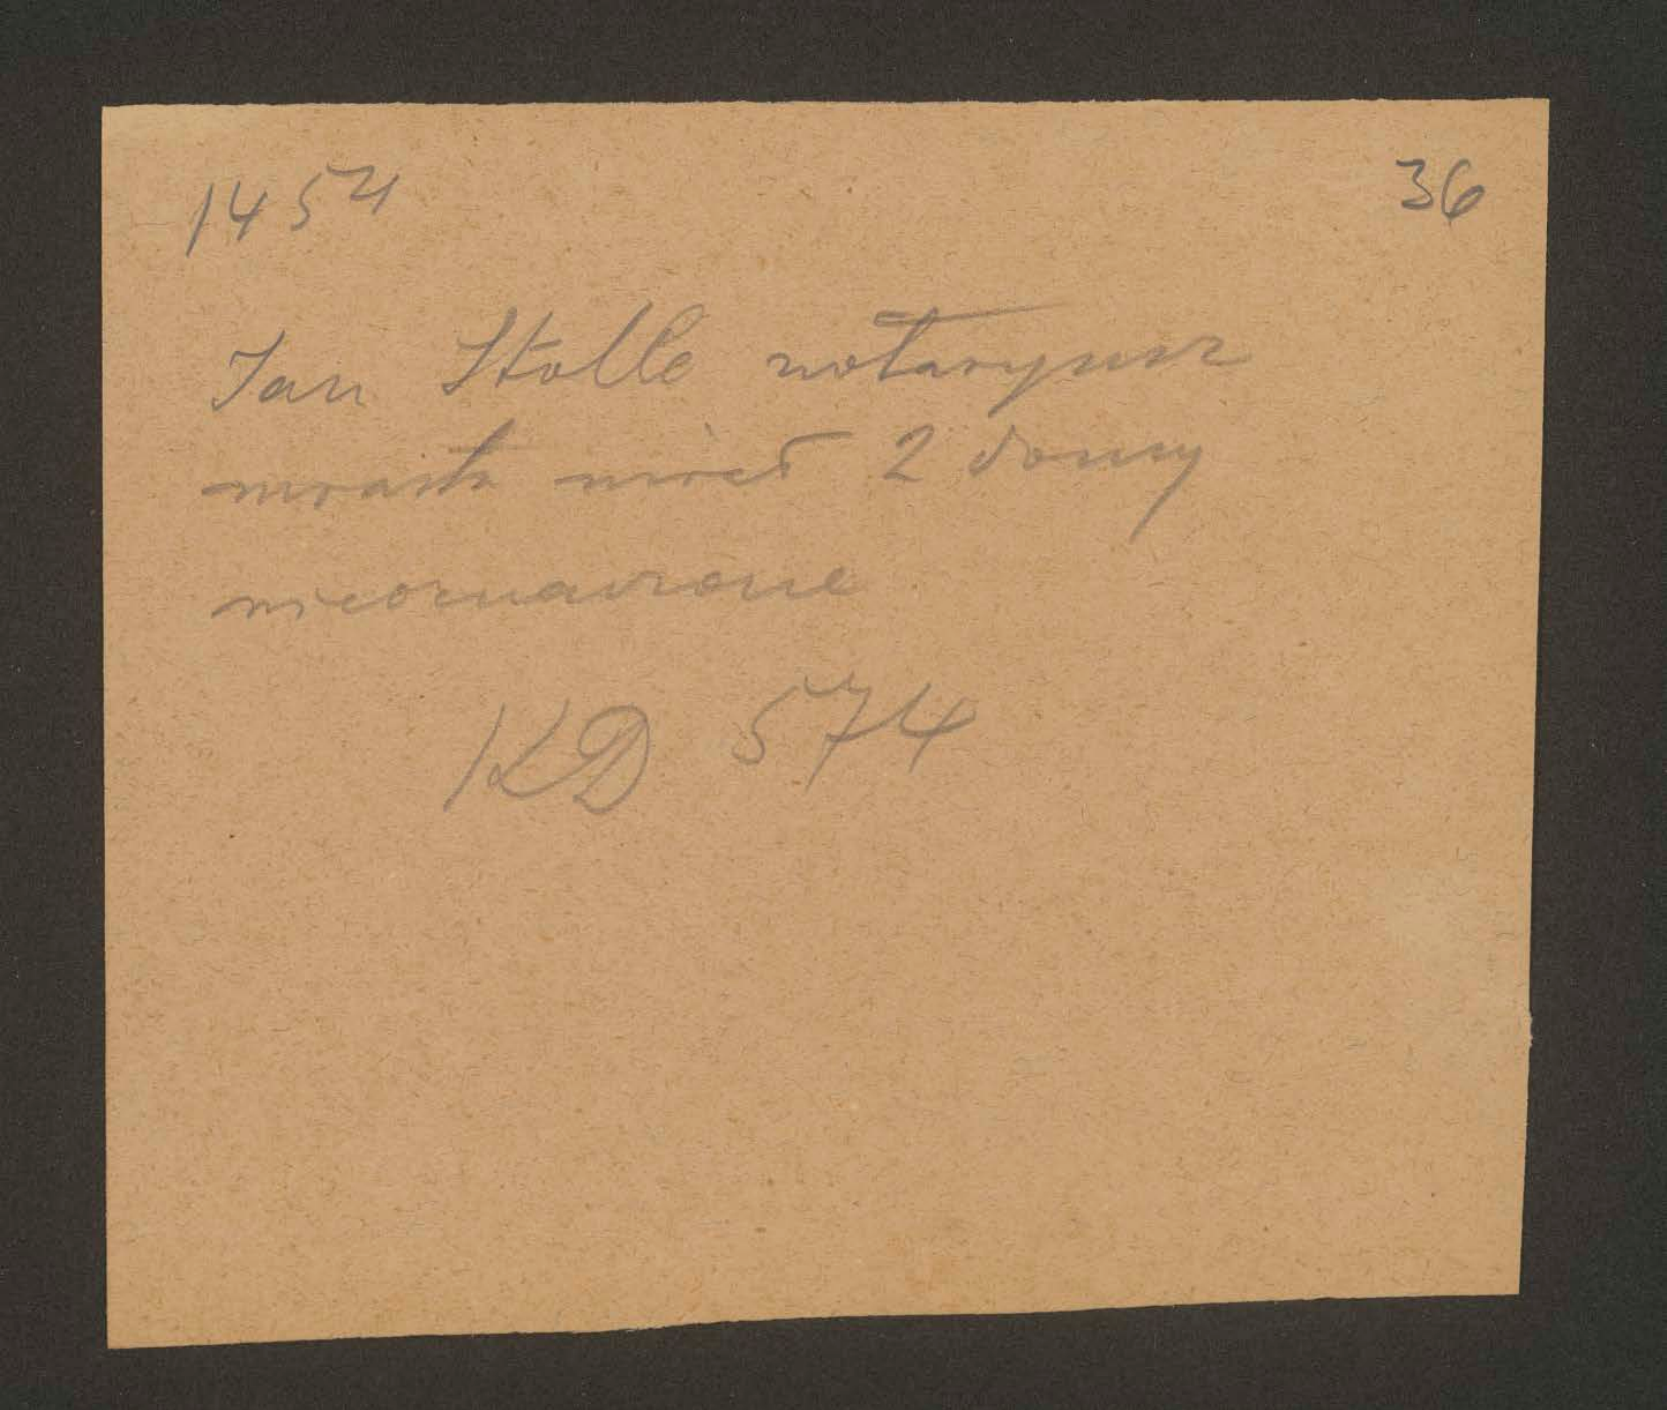 1454 36
Jan Stolle notaryusz
miasta miał 2 domy
nieoznaczone
KD 574